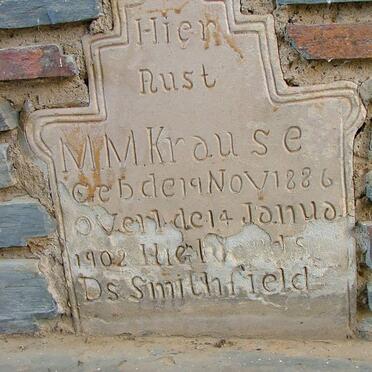 Hier
Rust
M.M. Krause
Geb. de 19 Nov 1886
Overl. de 14 Janua.
1902
Ds Smithfield